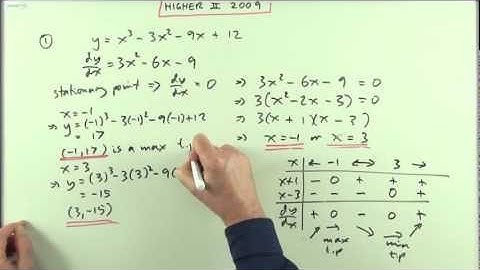 HIGHER II 2009
① y = x³ - 3x² - 9x + 12
dy/dx = 3x² - 6x - 9
stationary point => dy/dx = 0
=> 3x² - 6x - 9 = 0
=> 3(x² - 2x - 3) = 0
=> 3(x + 1)(x - 3) =
=> x = -1 or x = 3
x = -1
=> y = (-1)³ - 3(-1)² - 9(-1) + 12
= 17
(-1, 17) is a max t.
x = 3
=> y = (3)³ - 3(3)² - 9(
= -15
(3, -15)
x ← -1 ↔ 3 →
x+1 - 0 + + +
x-3 - - - 0 +
dy/dx + 0 - 0 +
↗ → ↘ → ↗
max min
t.p t.p